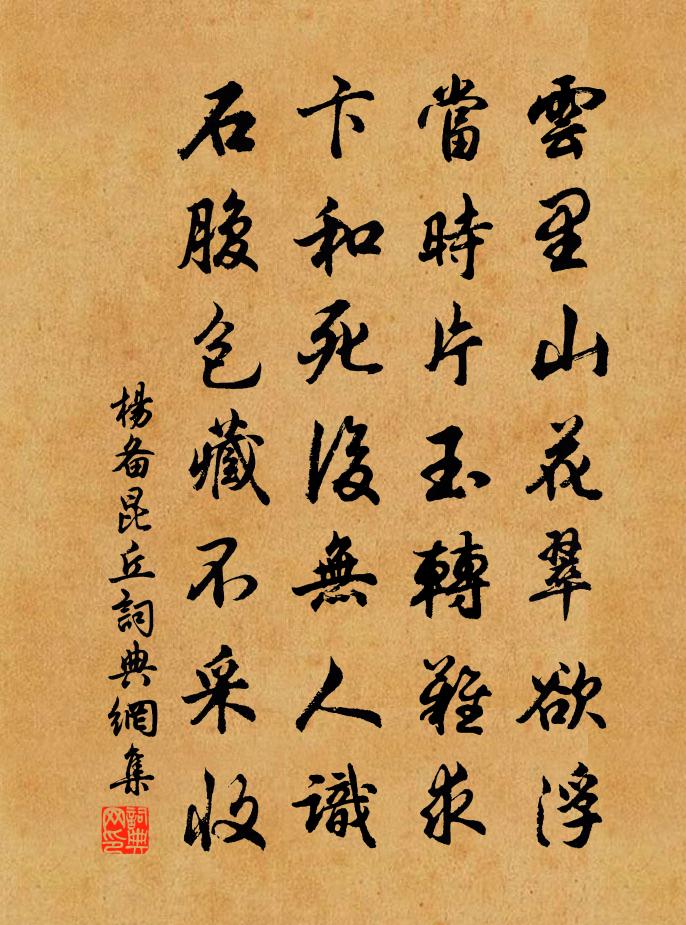 雲里山花翠欲浮
當時片玉轉難求
卞和死後無人識
石腹包藏不采收
楊备昆丘詞典網集
詞典網印